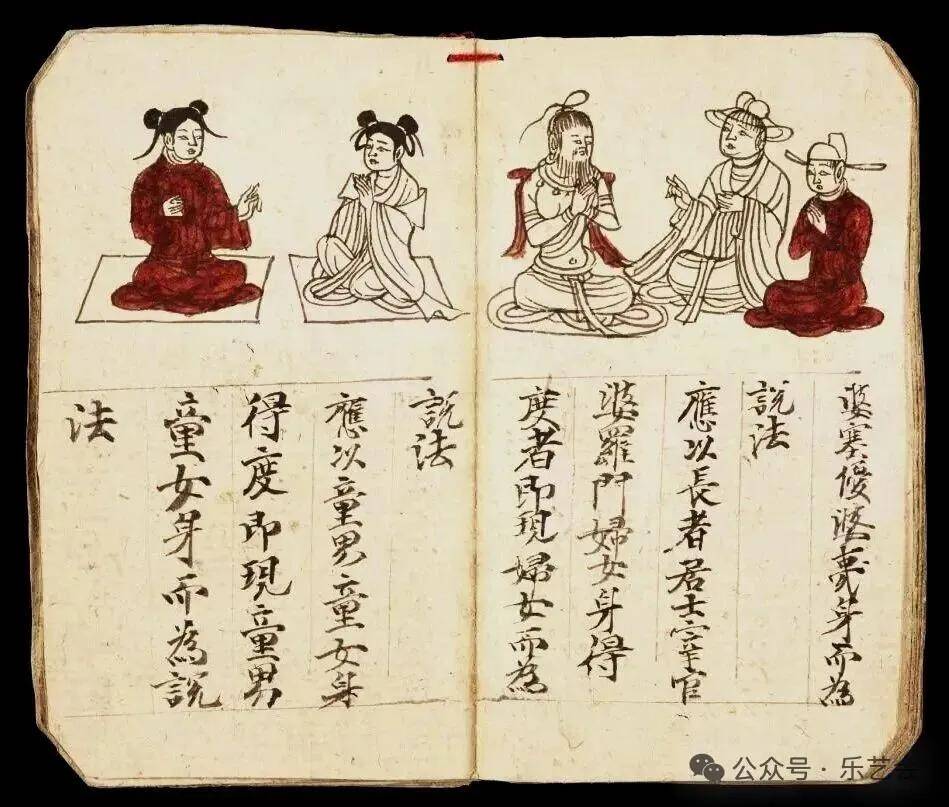 婆塞優婆夷身而為
說法
應以長者居士宰官
婆羅門婦女身得
度者即現婦女而為
說法
應以童男童女身
得度即現童男
童女身而為說
法
公众号 · 乐艺